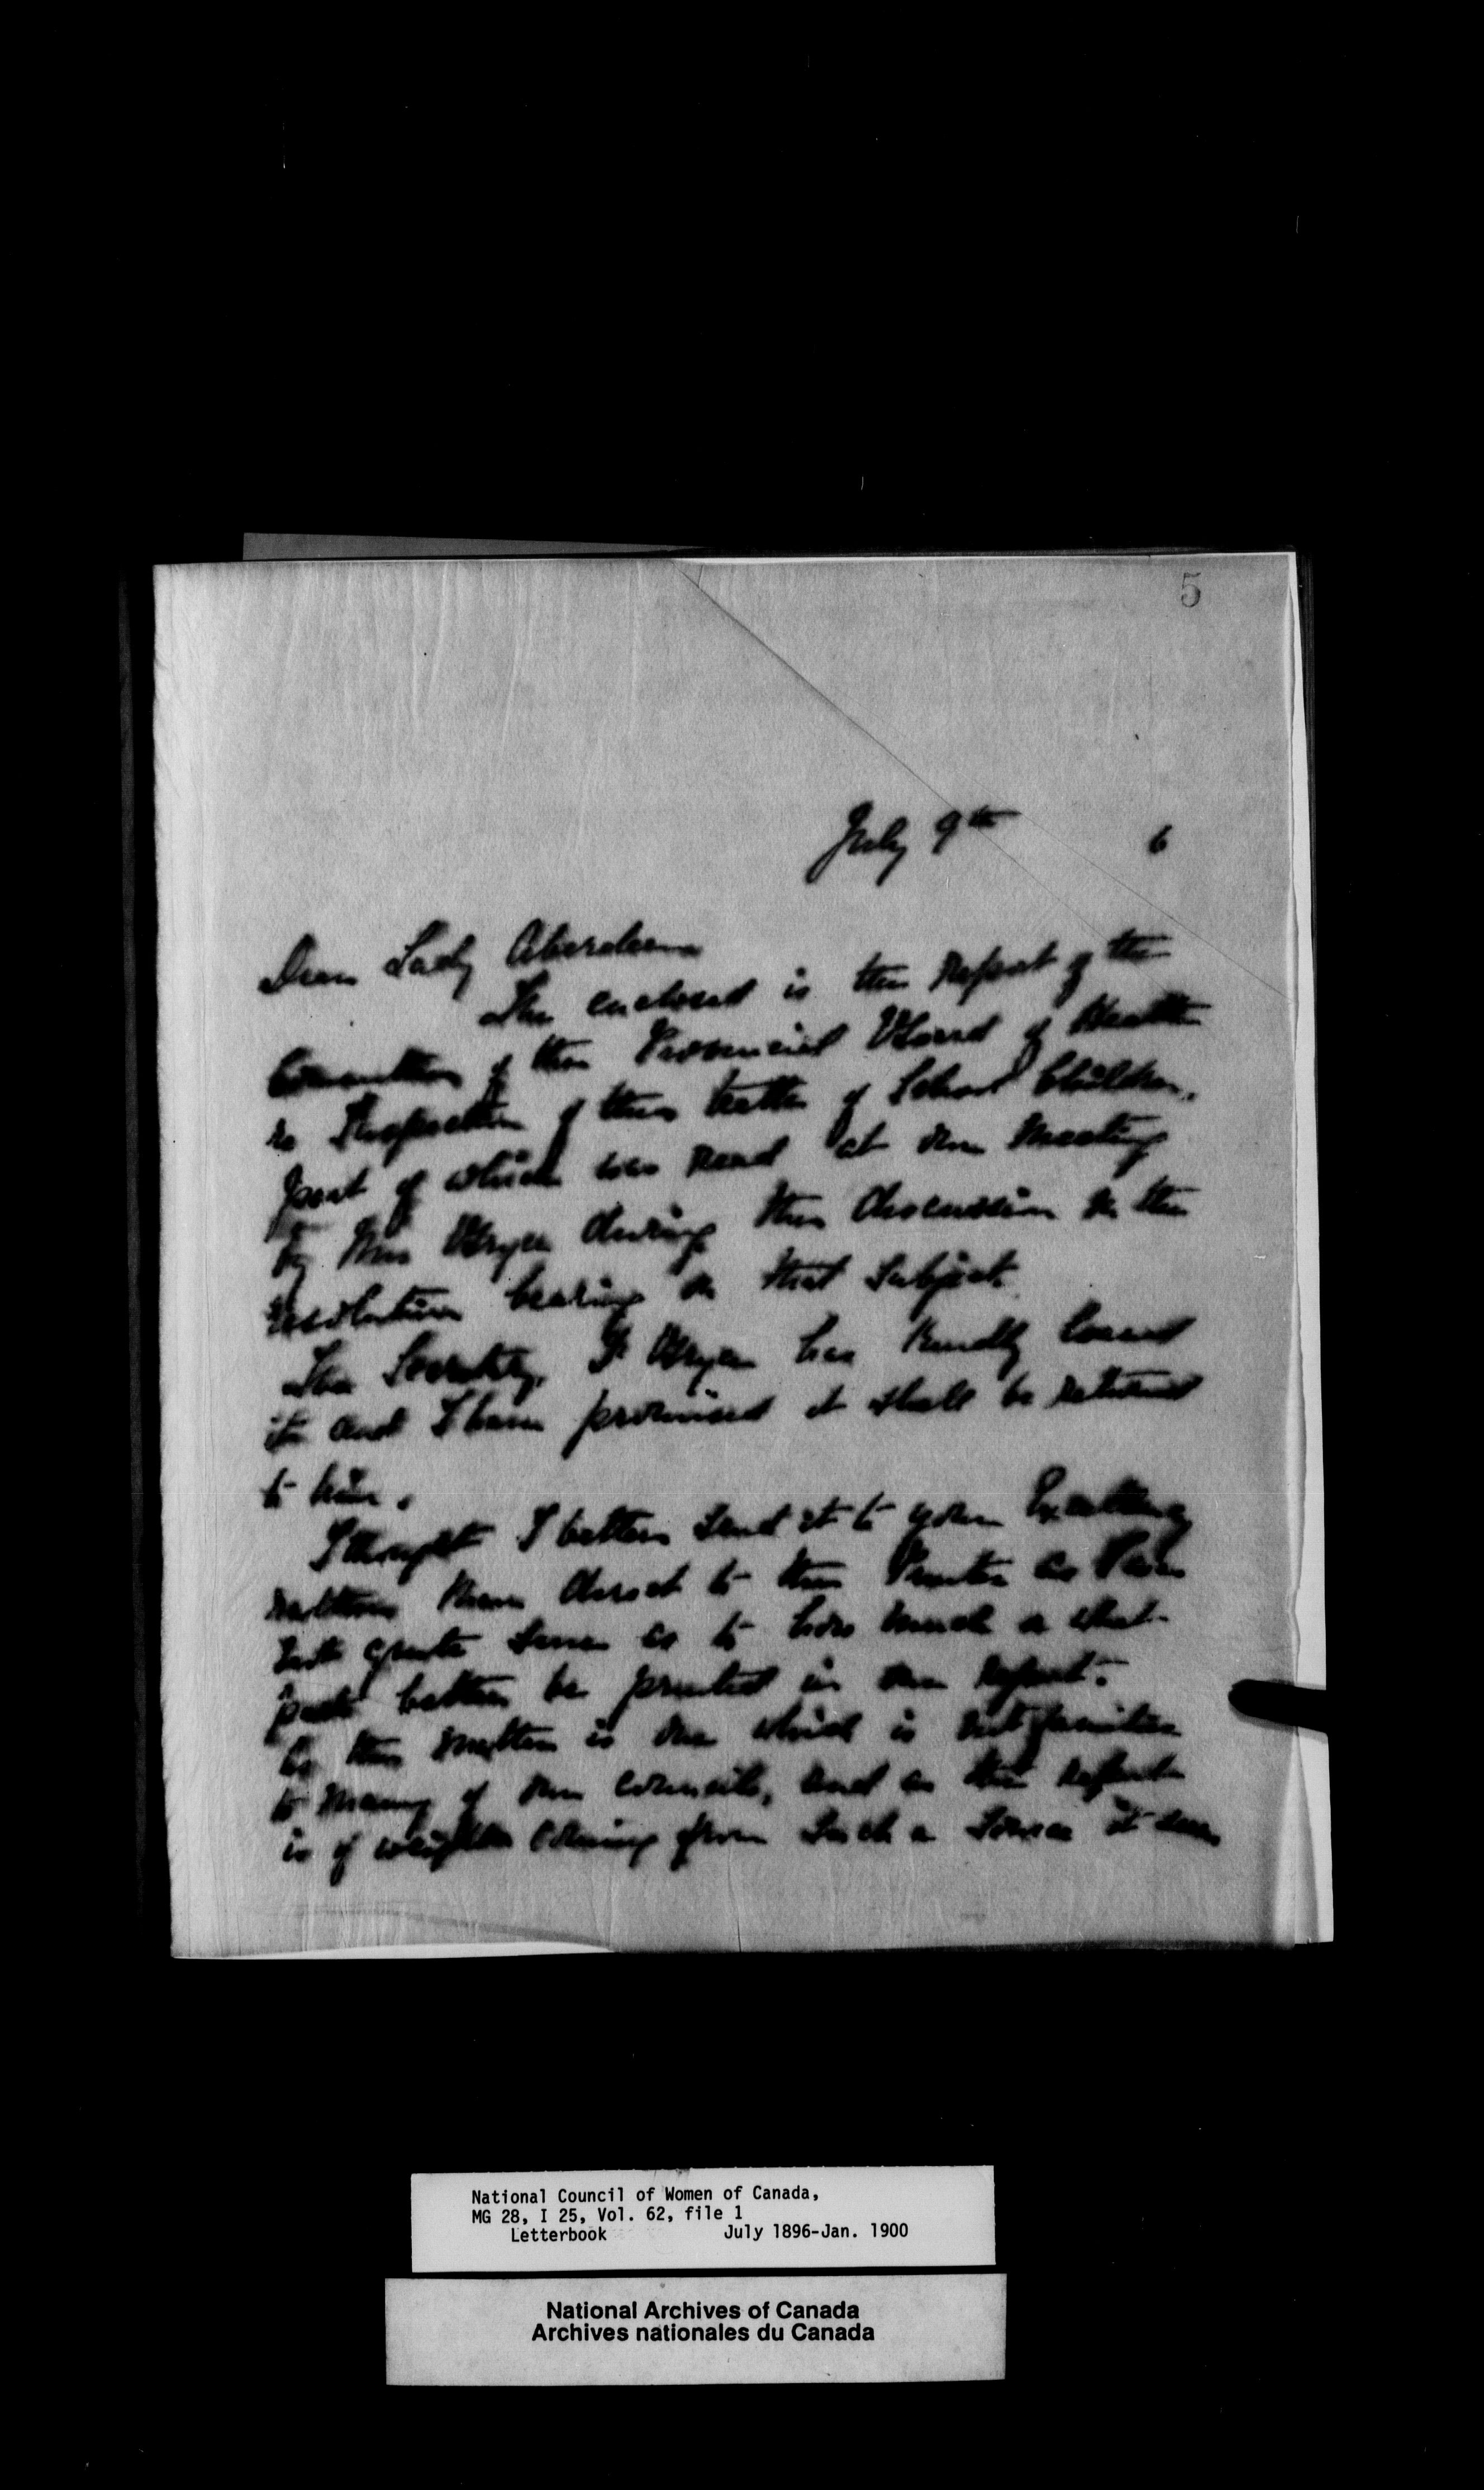 5
July 9th 6
Dear Lady Aberdeen
The enclosed is the Report of the
Committee of the Provincial Board of Health
re Inspection of the health of School Children,
part of which was read at our Meeting
by Mrs Bryce during the discussion on the
resolution bearing on that Subject.
The Secretary, Dr Bryce has kindly loaned
it and I have promised it shall be returned
to him.
I thought I better send it to your Excellency
rather than direct to the Printer as I am
not quite sure as to how much or what
part better be printed in our report.
As this matter is one which is not familiar
to many of our Councils, and as the report
is of weight coming from such a source it
National Council of Women of Canada,
MG 28, I 25, Vol. 62, file 1
Letterbook July 1896-Jan. 1900
National Archives of Canada
Archives nationales du Canada